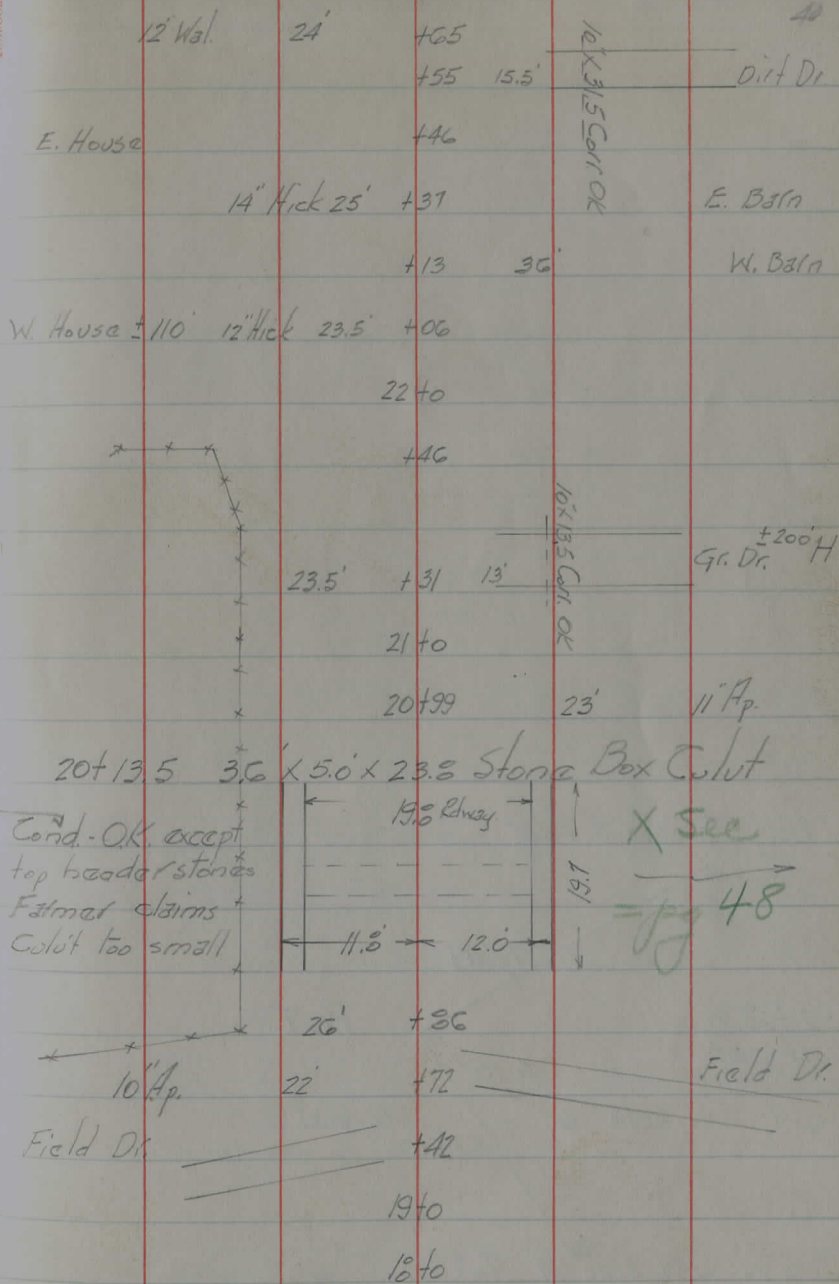 40
12" Wal. 24' +65
+55 15.5' Dirt Dr
10"X31.5 Corr. OK
E. House +46
14" Hick 25' +37 E. Barn
+13 36' W. Barn
W. House ±110' 12" Hick 23.5' +06
22+0
+46
10"X13.5 Corr. OK
±200' H
Gr. Dr.
23.5' +31 13'
21+0
20+99 23' 11" Ap.
20+13.5 3.6' X 5.0' X 23.8 Stone Box Culvt
19.8 Rdway
Cond.-O.K. except
top header stones
Farmer claims
Culvt too small
11.8' 12.0'
16.1
X Sec
= pg 48
26' +86
10" Ap. 22' +72 Field Dr.
Field Dr. +42
19+0
18+0